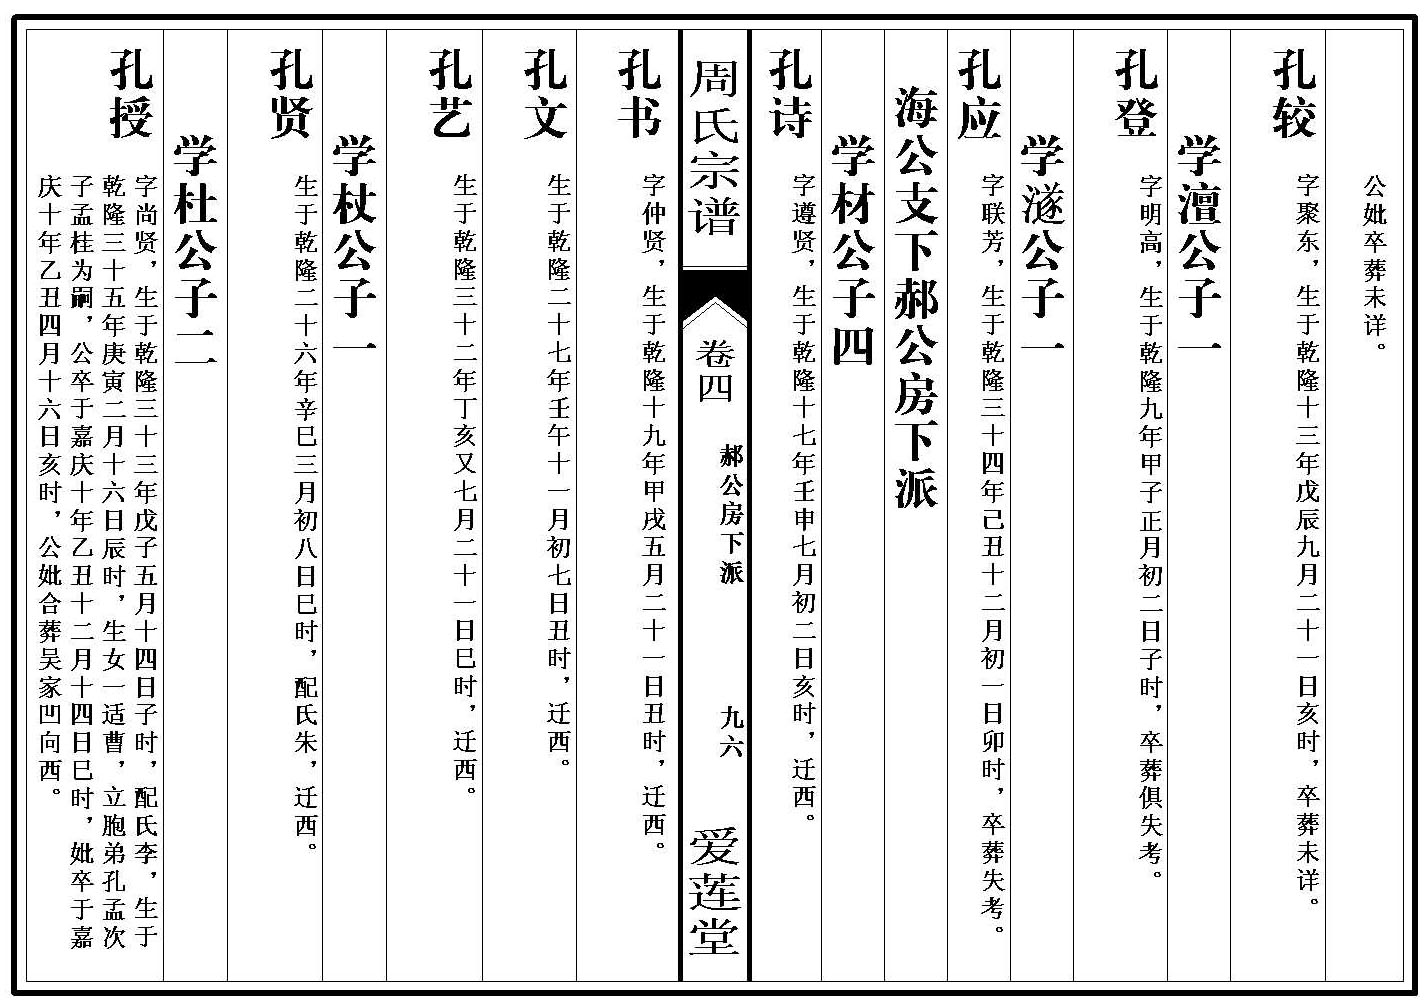 公妣卒葬未详。
孔较
字聚东，生于乾隆十三年戊辰九月二十一日亥时，卒葬未详。
学澶公子一
孔登
字明高，生于乾隆九年甲子正月初二日子时，卒葬俱失考。
学澻公子一
孔应
字联芳，生于乾隆三十四年己丑十二月初一日卯时，卒葬失考。
海公支下郝公房下派
学材公子四
孔诗
字遵贤，生于乾隆十七年壬申七月初二日亥时，迁西。
周氏宗谱
卷四
郝公房下派
九六
爱莲堂
孔书
字仲贤，生于乾隆十九年甲戌五月二十一日丑时，迁西。
孔文
生于乾隆二十七年壬午十一月初七日丑时，迁西。
孔艺
生于乾隆三十二年丁亥又七月二十一日巳时，迁西。
学杖公子一
孔贤
生于乾隆二十六年辛巳三月初八日巳时，配氏朱，迁西。
学杜公子二
孔授
字尚贤，生于乾隆三十三年戊子五月十四日子时，配氏李，生于
乾隆三十五年庚寅二月十六日辰时，生女一适曹，立胞弟孔孟次
子孟桂为嗣，公卒于嘉庆十年乙丑十二月十四日巳时，妣卒于嘉
庆十年乙丑四月十六日亥时，公妣合葬吴家凹向西。